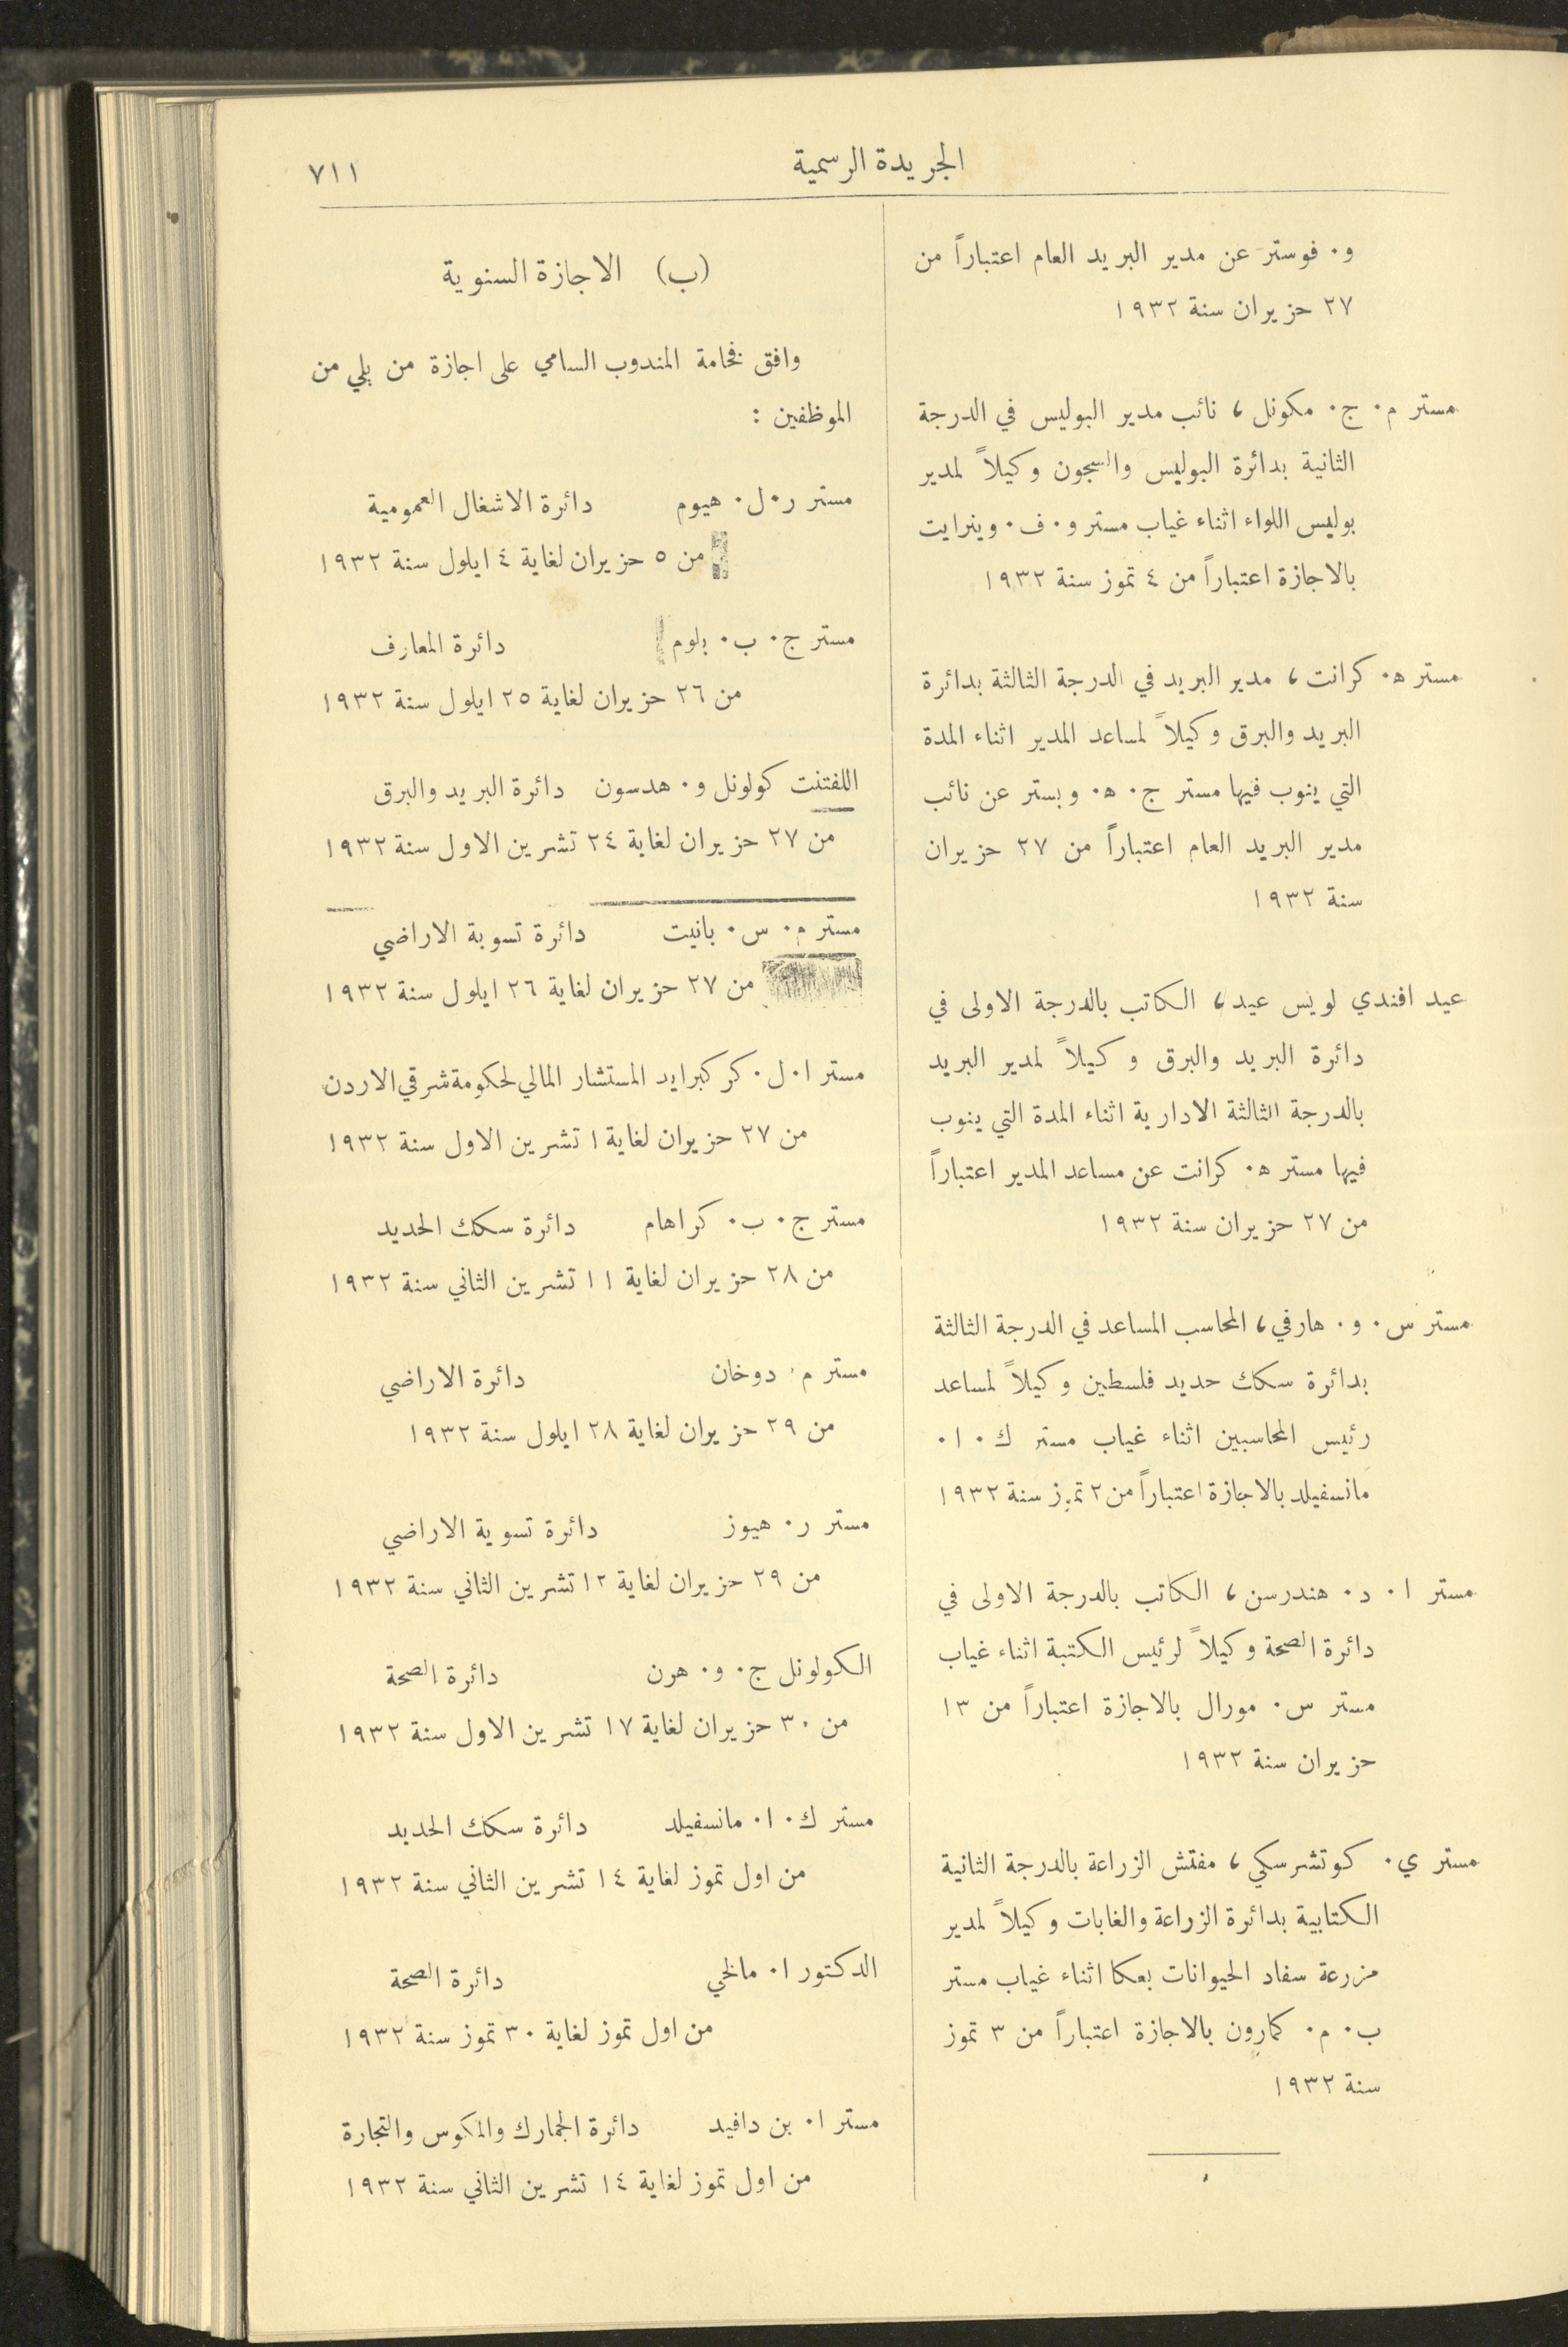 الجريدة الرسمية
٧١١
و. فوستر عن مدير البريد العام اعتباراً من
٢٧ حزيران سنة ١٩٣٢
مستر م. ج. مكونل، نائب مدير البوليس في الدرجة
الثانية بدائرة البوليس والسجون وكيلاً لمدير
بوليس اللواء اثناء غياب مستر و. ف. وينرايت
بالاجازة اعتباراً من ٤ تموز سنة ١٩٣٢
مستر ه. كرانت، مدير البريد في الدرجة الثالثة بدائرة
البريد والبرق وكيلاً لمساعد المدير اثناء المدة
التي ينوب فيها مستر ج. ه. وبستر عن نائب
مدير البريد العام اعتباراً من ٢٧ حزيران
سنة ١٩٣٢
عيد افندي لويس عيد، الكاتب بالدرجة الاولى في
دائرة البريد والبرق وكيلاً لمدير البريد
بالدرجة الثالثة الادارية اثناء المدة التي ينوب
فيها مستر ه. كرانت عن مساعد المدير اعتباراً
من ٢٧ حزيران سنة ١٩٣٢
مستر س. و. هارفي، المحاسب المساعد في الدرجة الثالثة
بدائرة سكك حديد فلسطين وكيلاً لمساعد
رئيس المحاسبين اثناء غياب مستر ك. ا.
مانسفيلد بالاجازة اعتباراً من ٢ تموز سنة ١٩٣٢
مستر ا. د. هندرسن، الكاتب بالدرجة الاولى في
دائرة الصحة وكيلاً لرئيس الكتبة اثناء غياب
مستر س. مورال بالاجازة اعتباراً من ١٣
حزيران سنة ١٩٣٢
مستر ي. كوتشرسكي، مفتش الزراعة بالدرجة الثانية
الكتابية بدائرة الزراعة والغابات وكيلاً لمدير
مزرعة سفاد الحيوانات بعكا اثناء غياب مستر
ب. م. كمارون بالاجازة اعتباراً من ٣ تموز
سنة ١٩٣٢
(ب) الاجازة السنوية
وافق فخامة المندوب السامي على اجازة من يلي من
الموظفين :
مستر ر. ل. هيوم دائرة الاشغال العمومية
من ٥ حزيران لغاية ٤ ايلول سنة ١٩٣٢
مستر ج. ب. بلوم دائرة المعارف
من ٢٦ حزيران لغاية ٢٥ ايلول سنة ١٩٣٢
اللفتنت كولونل و. هدسون دائرة البريد والبرق
من ٢٧ حزيران لغاية ٢٤ تشرين الاول سنة ١٩٣٢
مستر م. س. بانيت دائرة تسوية الاراضي
من ٢٧ حزيران لغاية ٢٦ ايلول سنة ١٩٣٢
مستر ا. ل. كركبرايد المستشار المالي لحكومة شرقي الاردن
من ٢٧ حزيران لغاية ١ تشرين الاول سنة ١٩٣٢
مستر ج. ب. كراهام دائرة سكك الحديد
من ٢٨ حزيران لغاية ١١ تشرين الثاني سنة ١٩٣٢
مستر م. دوخان دائرة الاراضي
من ٢٩ حزيران لغاية ٢٨ ايلول سنة ١٩٣٢
مستر ر. هيوز دائرة تسوية الاراضي
من ٢٩ حزيران لغاية ١٢ تشرين الثاني سنة ١٩٣٢
الكولونل ج. و. هرن دائرة الصحة
من ٣٠ حزيران لغاية ١٧ تشرين الاول سنة ١٩٣٢
مستر ك. ا. مانسفيلد دائرة سكك الحديد
من اول تموز لغاية ١٤ تشرين الثاني سنة ١٩٣٢
الدكتور ا. مالخي دائرة الصحة
من اول تموز لغاية ٣٠ تموز سنة ١٩٣٢
مستر ا. بن دافيد دائرة الجمارك والمكوس والتجارة
من اول تموز لغاية ١٤ تشرين الثاني سنة ١٩٣٢